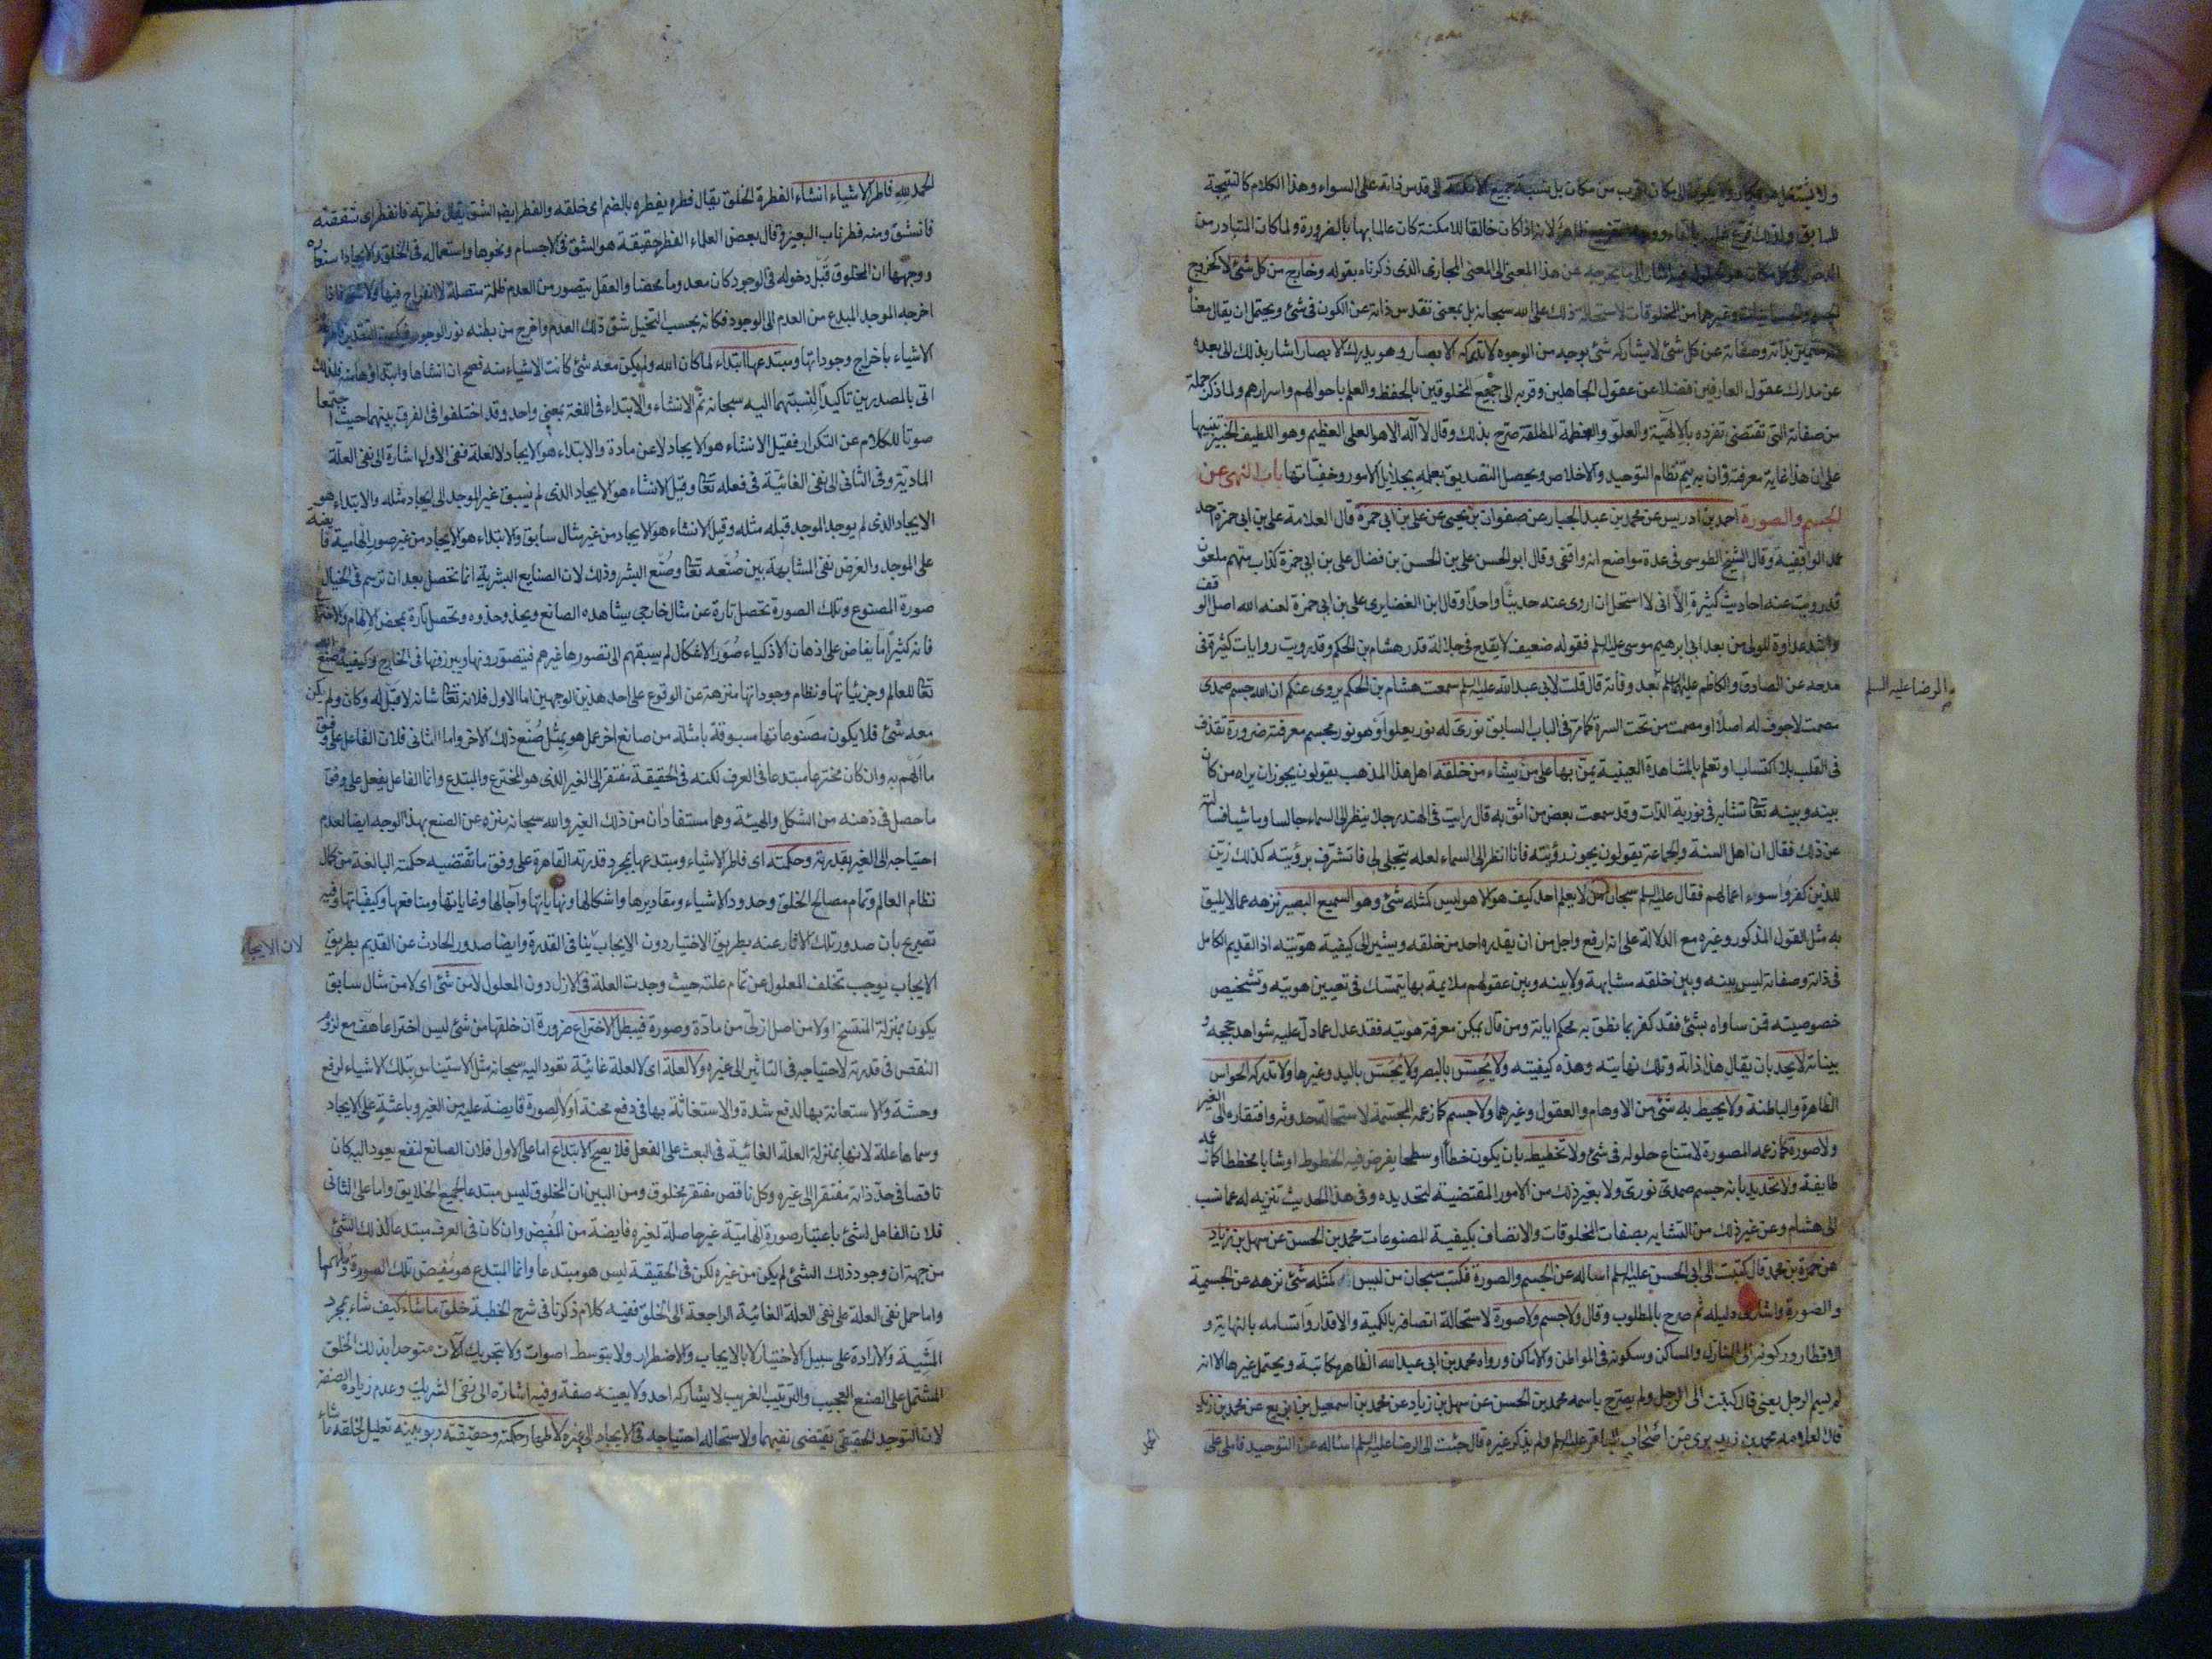 ولا يشتغل به مكان ولا يكون الى مكان اقرب من مكان بل نسبة جميع الامكنة الى قدس ذاته على السواء وهذا الكلام كالنتيجة
للسابق ولذلك فرع عليه بالفاء ووجه التفريع ظاهر لانه اذا كان خالقا للامكنة كان عالما بها بالضرورة ولما كان المتبادر من
كل مكان هو الحلول فيه اشار الى ما يخرجه عن هذا المعنى الى المعنى المجازى الذى ذكرناه بقوله وخارج من كل شئ لا كخروج
الجسم والجسمانيات وغيرهما من المخلوقات لاستحالة ذلك على الله سبحانه بل بمعنى تقدس ذاته عن الكون فى شئ ويحتمل ان يقال معناه
انه متميز بذاته وصفاته عن كل شئ لا يشاركه شئ بوجه من الوجوه لا تدركه الابصار وهو يدرك الابصار اشار بذلك الى بعده
عن مدارك عقول العارفين فضلا عن عقول الجاهلين وقربه الى جميع المخلوقين بالحفظ والعلم باحوالهم واسرارهم ولما ذكر جملة
من صفاته التى تقتضى تفرده بالالهية والعلو والعظمة المطلقة صرح بذلك وقال لا اله الا هو العلى العظيم وهو اللطيف الخبير تنبيها
على ان هذا غاية معرفته وان به يتم نظام التوحيد والاخلاص ويحصل التصديق بعلمه بجلايل الامور وخفياتها باب النهى عن
الجسم والصورة احمد بن ادريس عن محمد بن عبد الجبار عن صفوان بن يحيى عن على بن ابى حمزة قال العلامة على بن ابى حمزة احد
عمد الواقفية وقال الشيخ الطوسى فى عدة مواضع انه واقفى وقال ابو الحسن على بن الحسن بن فضال على بن ابى حمزة كذاب متهم ملعون
قد رويت عنه احاديث كثيرة الا انى لا استحل ان اروى عنه حديثا واحدا وقال ابن الغضايرى على بن ابى حمزة لعنه الله اصل الوقف
واشد عداوة للولى من بعد ابى ابرهيم موسى عليه السلم فقوله ضعيف لا يقدح فى جلالة قدر هشام بن الحكم وقد رويت روايات كثيرة فى
مدحه عن الصادق والكاظم عليهما السلم بعد وفاته قال قلت لابى عبد الله عليه السلم سمعت هشام بن الحكم يروى عنكم ان الله جسم صمدى
الرضا عليه السلم
مصمت لا جوف له اصلا او مصمت من تحت السرة كما مر فى الباب السابق نورى له نور يعلوا وهو نور مجسم معرفته ضرورة تقذف
فى القلب بلا اكتساب او تعلم بالمشاهدة العينية يمن بها على من يشاء من خلقه اهل هذا المذهب يقولون يجوز ان يراه من كان
بينه وبينه تعا تشابه فى نورية الذات وقد سمعت بعض من اثق به قال رايت فى الهند رجلا ينظر الى السماء جالسا وماشيا فسالته
عن ذلك فقال ان اهل السنة والجماعة يقولون يجوز رؤيته فانا انظر الى السماء لعله يتجلى لى فاتشرف برؤيته كذلك زين
للذين كفروا سوء اعمالهم فقال عليه السلم سبحان من لا يعلم احد كيف هو الا هو ليس كمثله شئ وهو السميع البصير نزهه عما لا يليق
به مثل القول المذكور وغيره مع الدلالة على انه ارفع واجل من ان يقدره احد من خلقه ويشير الى كيفية هويته اذ القديم الكامل
فى ذاته وصفاته ليس بينه وبين خلقه مشابهة ولا بينه وبين عقولهم ملايمة بها يتمسك فى تعيين هويته وتشخيص
خصوصيته فمن ساواه بشئ فقد كفر بما نطق به محكم اياته ومن قال يمكن معرفة هويته فقد عدل عما دل عليه شواهد حججه و
بيناته لا يحد بان يقال هذا ذاته وتلك نهايته وهذه كيفيته ولا يحس بالبصر ولا يجس باليد وغيرها ولا تدركه الحواس
الظاهرة والباطنة ولا يحيط به شئ من الاوهام والعقول وغيرهما ولا جسم كما زعمه المجسمة لاستحالة حدوثه وافتقاره الى الغير
ولا صورة كما زعمه المصورة لامتناع حلوله فى شئ ولا تخطيط بان يكون خطا او سطحا يفرض فيه الخطوط او شابا مخططا كما زعمه
طايفة ولا تحديد بانه جسم صمدى نورى ولا بغير ذلك من الامور المقتضية لتحديده وفى هذا الحديث تنزيه له عما نسب
الى هشام وعن غير ذلك من التشابه بصفات المخلوقات والاتصاف بكيفية المصنوعات محمد بن الحسن عن سهل بن زياد
عن حمزة بن محمد قال كتبت الى ابى الحسن عليه السلم اساله عن الجسم والصورة فكتب سبحان من ليس كمثله شئ نزهه عن الجسمية
والصورة واشار الى دليله ثم صرح بالمطلوب وقال ولا جسم ولا صورة لاستحالة اتصافه بالكمية والاقدار واتسامه بالنهاية و
الاقطار وركونه الى المنازل والمساكن وسكونه فى المواطن والاماكن ورواه محمد بن ابى عبد الله الظاهر مكاتبة ويحتمل غيرها الا انه
لم يسم الرجل يعنى قال كتبت الى الرجل ولم يصرح باسمه محمد بن الحسن عن سهل بن زياد عن محمد بن اسمعيل بن بزيع عن محمد بن زيد
قال العلامة محمد بن زيد بترى من اصحاب الباقر عليه السلم ولم يذكر غيره قال جئت الى الرضا عليه السلم اساله عن التوحيد فاملى على
الحمد
الحمد لله فاطر الاشياء انشاء الفطرة الخلق يقال فطره يفطره بالضم اى خلقه والفطر ايضا الشق يقال فطرته فانفطر اى شققته
فانشق ومنه فطر ناب البعير وقال بعض العلماء الفطر حقيقة هو الشق فى الاجسام ونحوها واستعماله فى الخلق والايجاد استعارة
ووجهها ان المخلوق قبل دخوله فى الوجود كان معدوما محضا والعقل يتصور من العدم ظلمة متصلة لا انفراج فيها ولا شق فاذا
اخرجه الموجد المبدع من العدم الى الوجود فكانه بحسب التخيل شق ذلك العدم واخرج من بطنه نور الوجود
الاشياء باخراج وجوداتها ومبتدعها ابتداء لما كان الله ولم يكن معه شئ كانت الاشياء منه فصح ان انشاها وابتداؤها منه فلذلك
اتى بالمصدرين تاكيدا لنسبتهما اليه سبحانه ثم الانشاء والابتداء فى اللغة بمعنى واحد وقد اختلفوا فى الفرق بينهما حيث اجتمعا
صونا للكلام عن التكرار فقيل الانشاء هو الايجاد لا عن مادة والابتداء هو الايجاد لا لعلة ففى الاول اشارة الى نفى العلة
المادية وفى الثانى الى نفى الغائية فى فعله تعا وقيل الانشاء هو الايجاد الذى لم يسبق غير الموجد الى ايجاد مثله والابتداء هو
الايجاد الذى لم يوجد الموجد قبله مثله وقيل الانشاء هو الايجاد من غير مثال سابق والابتداء هو الايجاد من غير صور الهامية فايضة
على الموجد والغرض نفى المشابهة بين صنعه تعا وصنع البشر وذلك لان الصنايع البشرية انما تحصل بعد ان ترسم فى الخيال
صورة المصنوع وتلك الصورة تحصل تارة عن مثال خارجى يشاهده الصانع ويحذو حذوه وتحصل تارة بمحض الالهام والاختراع
فانه كثيرا ما يفاض على اذهان الاذكياء صور الاشكال لم يسبقهم الى تصورها غيرهم فيتصورونها ويبرزونها فى الخارج وكيفية صنع الله
تعا للعالم وجزئياتها ونظام وجوداتها منزهة عن الوقوع على احد هذين الوجهين اما الاول فلانه تعا شانه لا قبل له وكان ولم يكن
معه شئ فلا يكون مصنوعاتها مسبوقة بامثلة من صانع اخر عمل هو بمثل صنع ذلك الاخر واما الثانى فلان الفاعل على وفق
ما الهم به وان كان مخترعا مبتدعا فى العرف لكنه فى الحقيقة مفتقر الى الغير الذى هو المخترع والمبتدع وانما الفاعل يفعل على وفق
ما حصل فى ذهنه من الشكل والهيئة وهما مستفادان من ذلك الغير والله سبحانه منزه عن الصنع بهذا الوجه ايضا لعدم
احتياجه الى الغير بقدرته وحكمته اى فاطر الاشياء ومبتدعها بمجرد قدرته القاهرة على وفق ما تقتضيه حكمته البالغة من كمال
نظام العالم وتمام مصالح الخلق وحدود الاشياء ومقاديرها واشكالها ونهاياتها وآجالها وغاياتها ومنافعها وكيفياتها وفيه
تصريح بان صدور تلك الاثار عنه بطريق الاختيار دون الايجاب ينافى القدرة وايضا صدور الحادث عن القديم بطريق
لان الايجاب
الايجاب يوجب تخلف المعلول عن تمام علته حيث وجدت العلة فى الازل دون المعلول لا من شئ اى لا من مثال سابق
يكون بمنزلة المنتسخ او لا من اصل ازلى من مادة وصورة فيبطل الاختراع ضرورة ان خلقها من شئ ليس اختراعا هف مع لزوم
النقص فى قدرته لاحتياجه فى التاثير الى غيره ولا لعلة اى لا لعلة غائية تعود اليه سبحانه مثل الاستيناس بتلك الاشياء لرفع
وحشة والاستعانة بها لدفع شدة والاستغاثة بها فى دفع محنة او لا لصورة فايضة عليه من الغير وباعثة على الايجاد
وسماها علة لانها بمنزلة العلة الغائية فى البعث على الفعل فلا يصح الابتداع اما على الاول فلان الصانع لنفع يعود اليه كان
ناقصا فى حد ذاته مفتقرا الى غيره وكل ناقص مفتقر مخلوق ومن البين ان المخلوق ليس مبتدعا لجميع الخلايق واما على الثانى
فلان الفاعل لشئ باعتبار صورة الهامية غير حاصلة لغيره فايضة من المفيض وان كان فى العرف مبتدعا لذلك الشئ
من جهة ان وجود ذلك الشئ لم يكن من غيره لكن فى الحقيقة ليس هو مبتدعا وانما المبتدع هو مفيض تلك الصورة وملهمها
واما حمل نفى العلة على نفى العلة الغائية الراجعة الى الخلق ففيه كلام ذكرنا فى شرح الخطبة خلق ما شاء كيف شاء بمجرد
المشية والارادة على سبيل الاختيار لا بالايجاب والاضطرار ولا بتوسط اصوات ولا بتحريك آلات متوحدا بذلك الخلق
المشتمل على الصنع العجيب والترتيب الغريب لا يشاركه احد ولا يعينه صفة وفيه اشارة الى نفى الشريك وعدم زيادة الصفة
لان التوحيد الحقيقى يقتضى نفيهما ولاستحالة احتياجه فى الايجاد الى غيره لاظهار حكمته وحقيقة ربوبيته تعليل لخلقه ما شاء